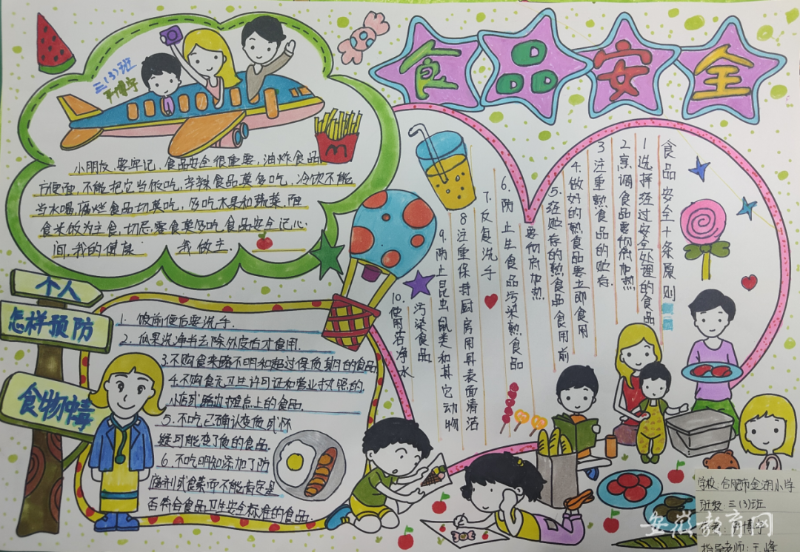 食品安全
三(3)班
小朋友,要牢记,食品安全很重要,油炸食品
方便面,不能把它当饭吃,辛辣食品莫多吃,冷饮不能
当水喝,腐烂食品切莫吃,多吃水果和蔬菜,两
食米做为主食,切忌零食莫多吃,食品安全记心
间,我的健康 我做主.
食品安全十条原则
1.选择经过安全处理的食品
2.烹调食品要彻底加热
3.注重熟食品的贮存
4.做好的熟食品要立即食用
5.经贮存的熟食品食用前
要彻底加热
6.防止生食品污染熟食品
7.反复洗手
8.注重保持厨房用具表面清洁
9.防止昆虫鼠类和其它动物
污染食品
10.使用洁净水
个人
怎样预防
食物中毒
1.饭前便后要洗手.
2.瓜果洗净并去除外皮后才食用.
3.不购食来路不明和超过保质期的食品
4.不购食无卫生许可证和营业执照的
小店或路边摊点上的食品.
5.不吃已确认变质或怀
疑可能变了质的食品.
6.不吃明知添加了防
腐剂或色素而不能肯定是
否符合食品卫生安全标准的食品.
学校:合肥市金湖小学
班级:三(3)班
指导老师:王峰
安徽教育网